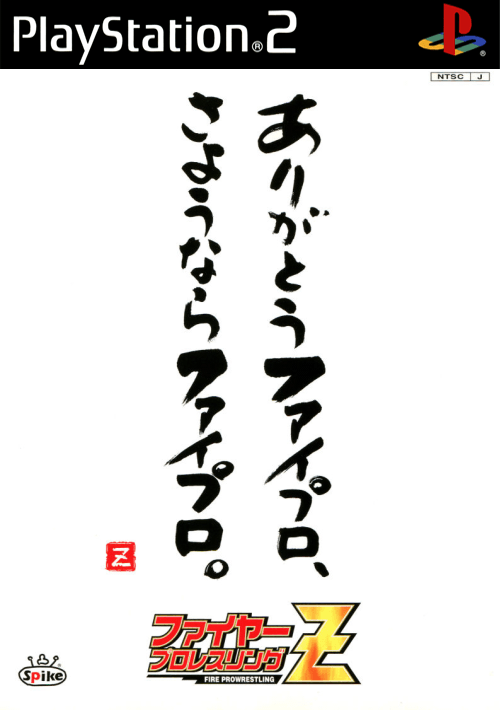 PlayStation®2
NTSC J
ありがとうファイプロ、
さようならファイプロ。
Z
ファイヤー
プロレスリング
Z
FIRE PROWRESTLING
Spike®